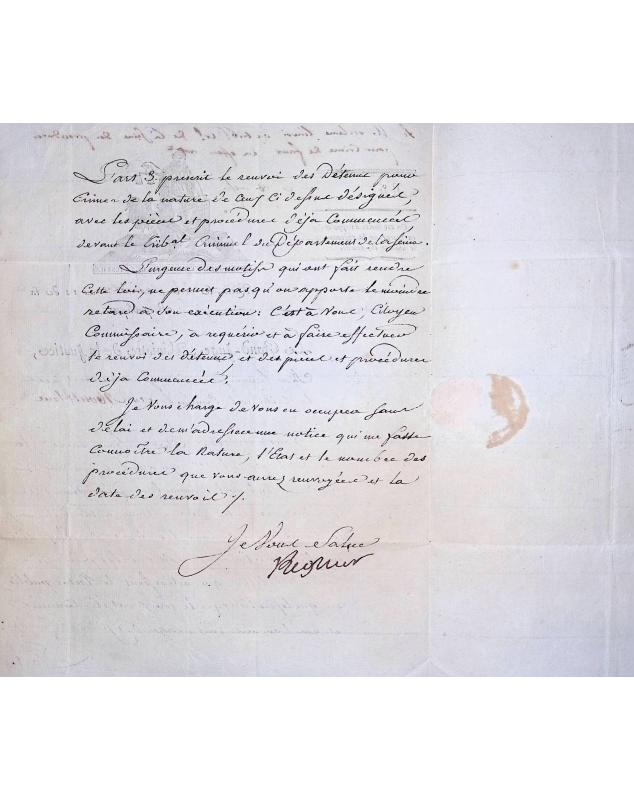 L'art 3. prescrit le renvoi des Détenus pour
Crimes de la nature de Ceux Ci dessus désignés,
avec les pièces et procédures déja Commencées
devant le tribal Criminel du Département de la Seine.
L'urgence des motifs qui ont fait rendre
Cette loi, ne permet pas qu'on apporte le moindre
retard à son exécution: C'est à Vous, Citoyen
Commissaire, à requérir et à faire effectuer
le renvoi des détenus, et des pièces et procédures
déja Commencées.
Je Vous charge de Vous en occuper sans
délai et de m'adresser une notice qui me fasse
Connoître la Nature, l'Etat et le nombre des
procédures que vous aurez renvoyées et la
date des renvois /.
Je Vous Salue
Regnier